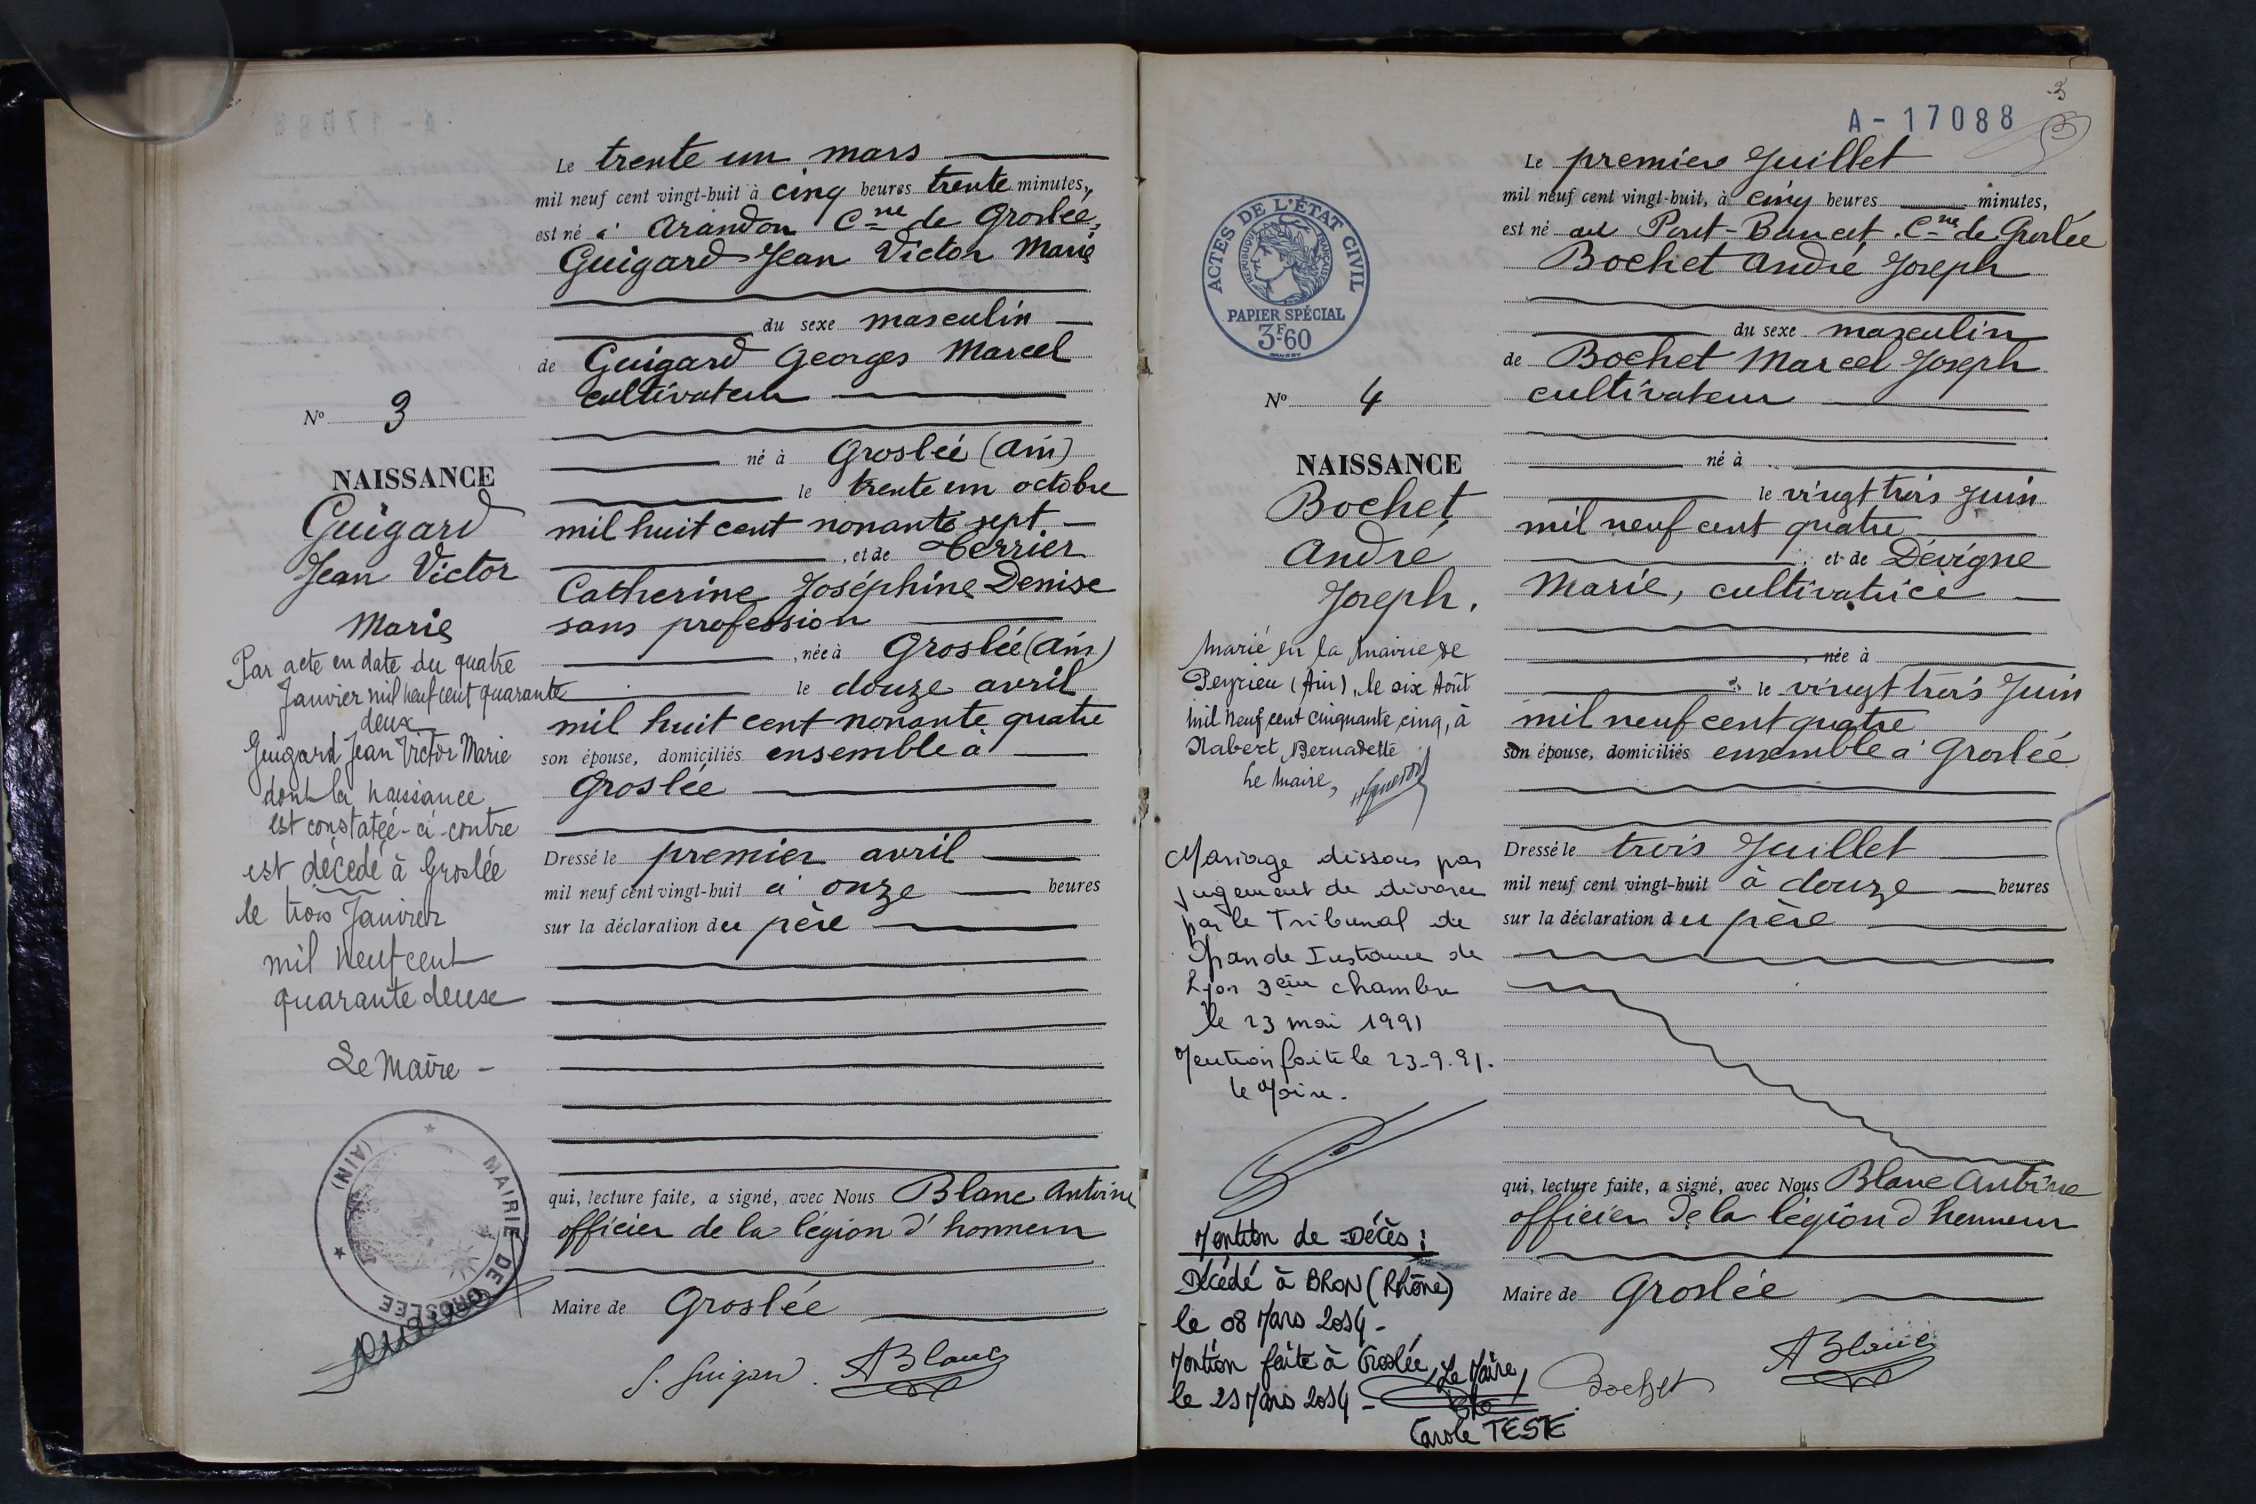 Le trente un mars
mil neuf cent vingt-huit à cinq heures trente minutes,
est né à Arandon Cne de Groslée,
Guigard Jean Victor Marie
du sexe masculin
de Guigard Georges Marcel
cultivateur
né à Groslée (Ain)
le trente un octobre
mil huit cent nonante sept
, et de Terrier
Catherine Joséphine Denise
sans profession
, née à Groslée (Ain)
le douze avril
mil huit cent nonante quatre
son épouse, domiciliés ensemble à
Groslée
Dressé le premier avril
mil neuf cent vingt-huit à onze heures
sur la déclaration du père
qui, lecture faite, a signé, avec Nous Blanc Antoine
officier de la légion d'honneur
Maire de Groslée
G. Guigard. ABlanc
No 3
NAISSANCE
Guigard
Jean Victor
Marie
Par acte en date du quatre
Janvier mil neuf cent quarante
deux
Guigard Jean Victor Marie
dont la naissance
est constatée-ci-contre
est décédé à Groslée
le trois Janvier
mil neuf cent
quarante deux
Le Maire -
MAIRIE DE GROSLÉE
(AIN)
3
A-17088
ACTES DE L'ÉTAT CIVIL
RÉPUBLIQUE FRANÇAISE
PAPIER SPÉCIAL
3F60
Le premier Juillet
mil neuf cent vingt-huit, à cinq heures minutes,
est né au Port-Bancet Cne de Groslée
Bochet André Joseph
du sexe masculin
de Bochet Marcel Joseph
cultivateur
né à
le vingt trois Juin
mil neuf cent quatre
, et de Dévigne
Marie, cultivatrice
, née à
le vingt trois Juin
mil neuf cent quatre
son épouse, domiciliés ensemble à Groslée
Dressé le trois Juillet
mil neuf cent vingt-huit à douze heures
sur la déclaration du père
qui, lecture faite, a signé, avec Nous Blanc Antoine
officier de la légion d'honneur
Maire de Groslée
Bochet ABlanc
No 4
NAISSANCE
Bochet
André
Joseph.
Marié en la mairie de
Peyrieu (Ain), le six Août
mil neuf cent cinquante cinq, à
Nabert Bernadette
Le Maire,
Mariage dissous par
jugement de divorce
par le Tribunal de
Grande Instance de
Lyon 3ème chambre
le 23 mai 1991
Mention faite le 23-9-91.
le Maire.
Mention de Décès :
Décédé à BRON (Rhône)
le 08 Mars 2014 -
Mention faite à Groslée
le 21 Mars 2014 -
Le Maire,
Carole TESTE